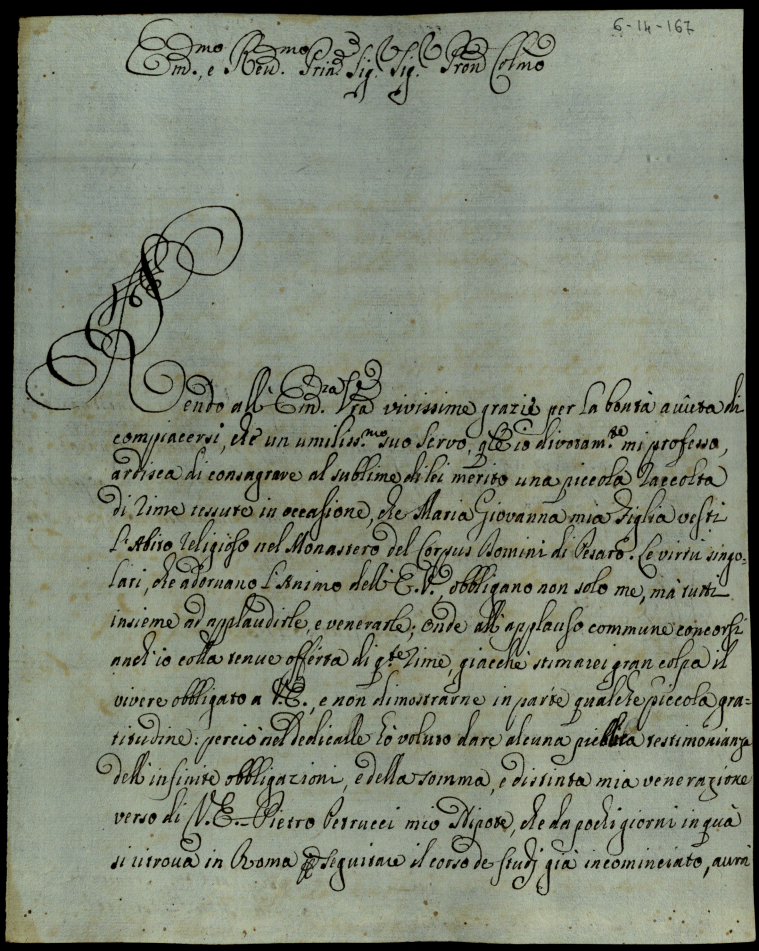 6-14-167
Em.mo, e Rev.mo Prin.e Sig.r Sig.r Pron Colmo
Rendo all' Em.za Vra vivissime grazie per la bontà avuta di
compiacersi, che un umiliss.mo suo Servo, qle io divotam.te mi professo,
ardisca di consagrare al sublime di lei merito una piccola Raccolta
di Rime tessute in occasione, che Maria Giovanna mia Figlia vestì
l'Abito Religioso nel Monastero del Corpus Domini di Pesaro. Le virtù singo=
lari, che adornano l'Animo dell' E.V., obbligano non solo me, mà tutti
insieme ad applaudirle, e venerarle; onde all' applauso commune concorsi
anch'io colla tenue offerta di q.te Rime, giacchè stimarei gran colpa il
vivere obbligato a V.E., e non dimostrarne in parte qualche piccola gra=
titudine: perciò nel dedicalle hò voluto dare alcuna testimonianza
dell' infinite obbligazioni, e della somma, e distinta mia venerazione
verso di V.E. = Pietro Petrucci mio Nipote, che da pochi giorni in quà
si ritrova in Roma p seguitare il corso de studj già incominciato, avrà